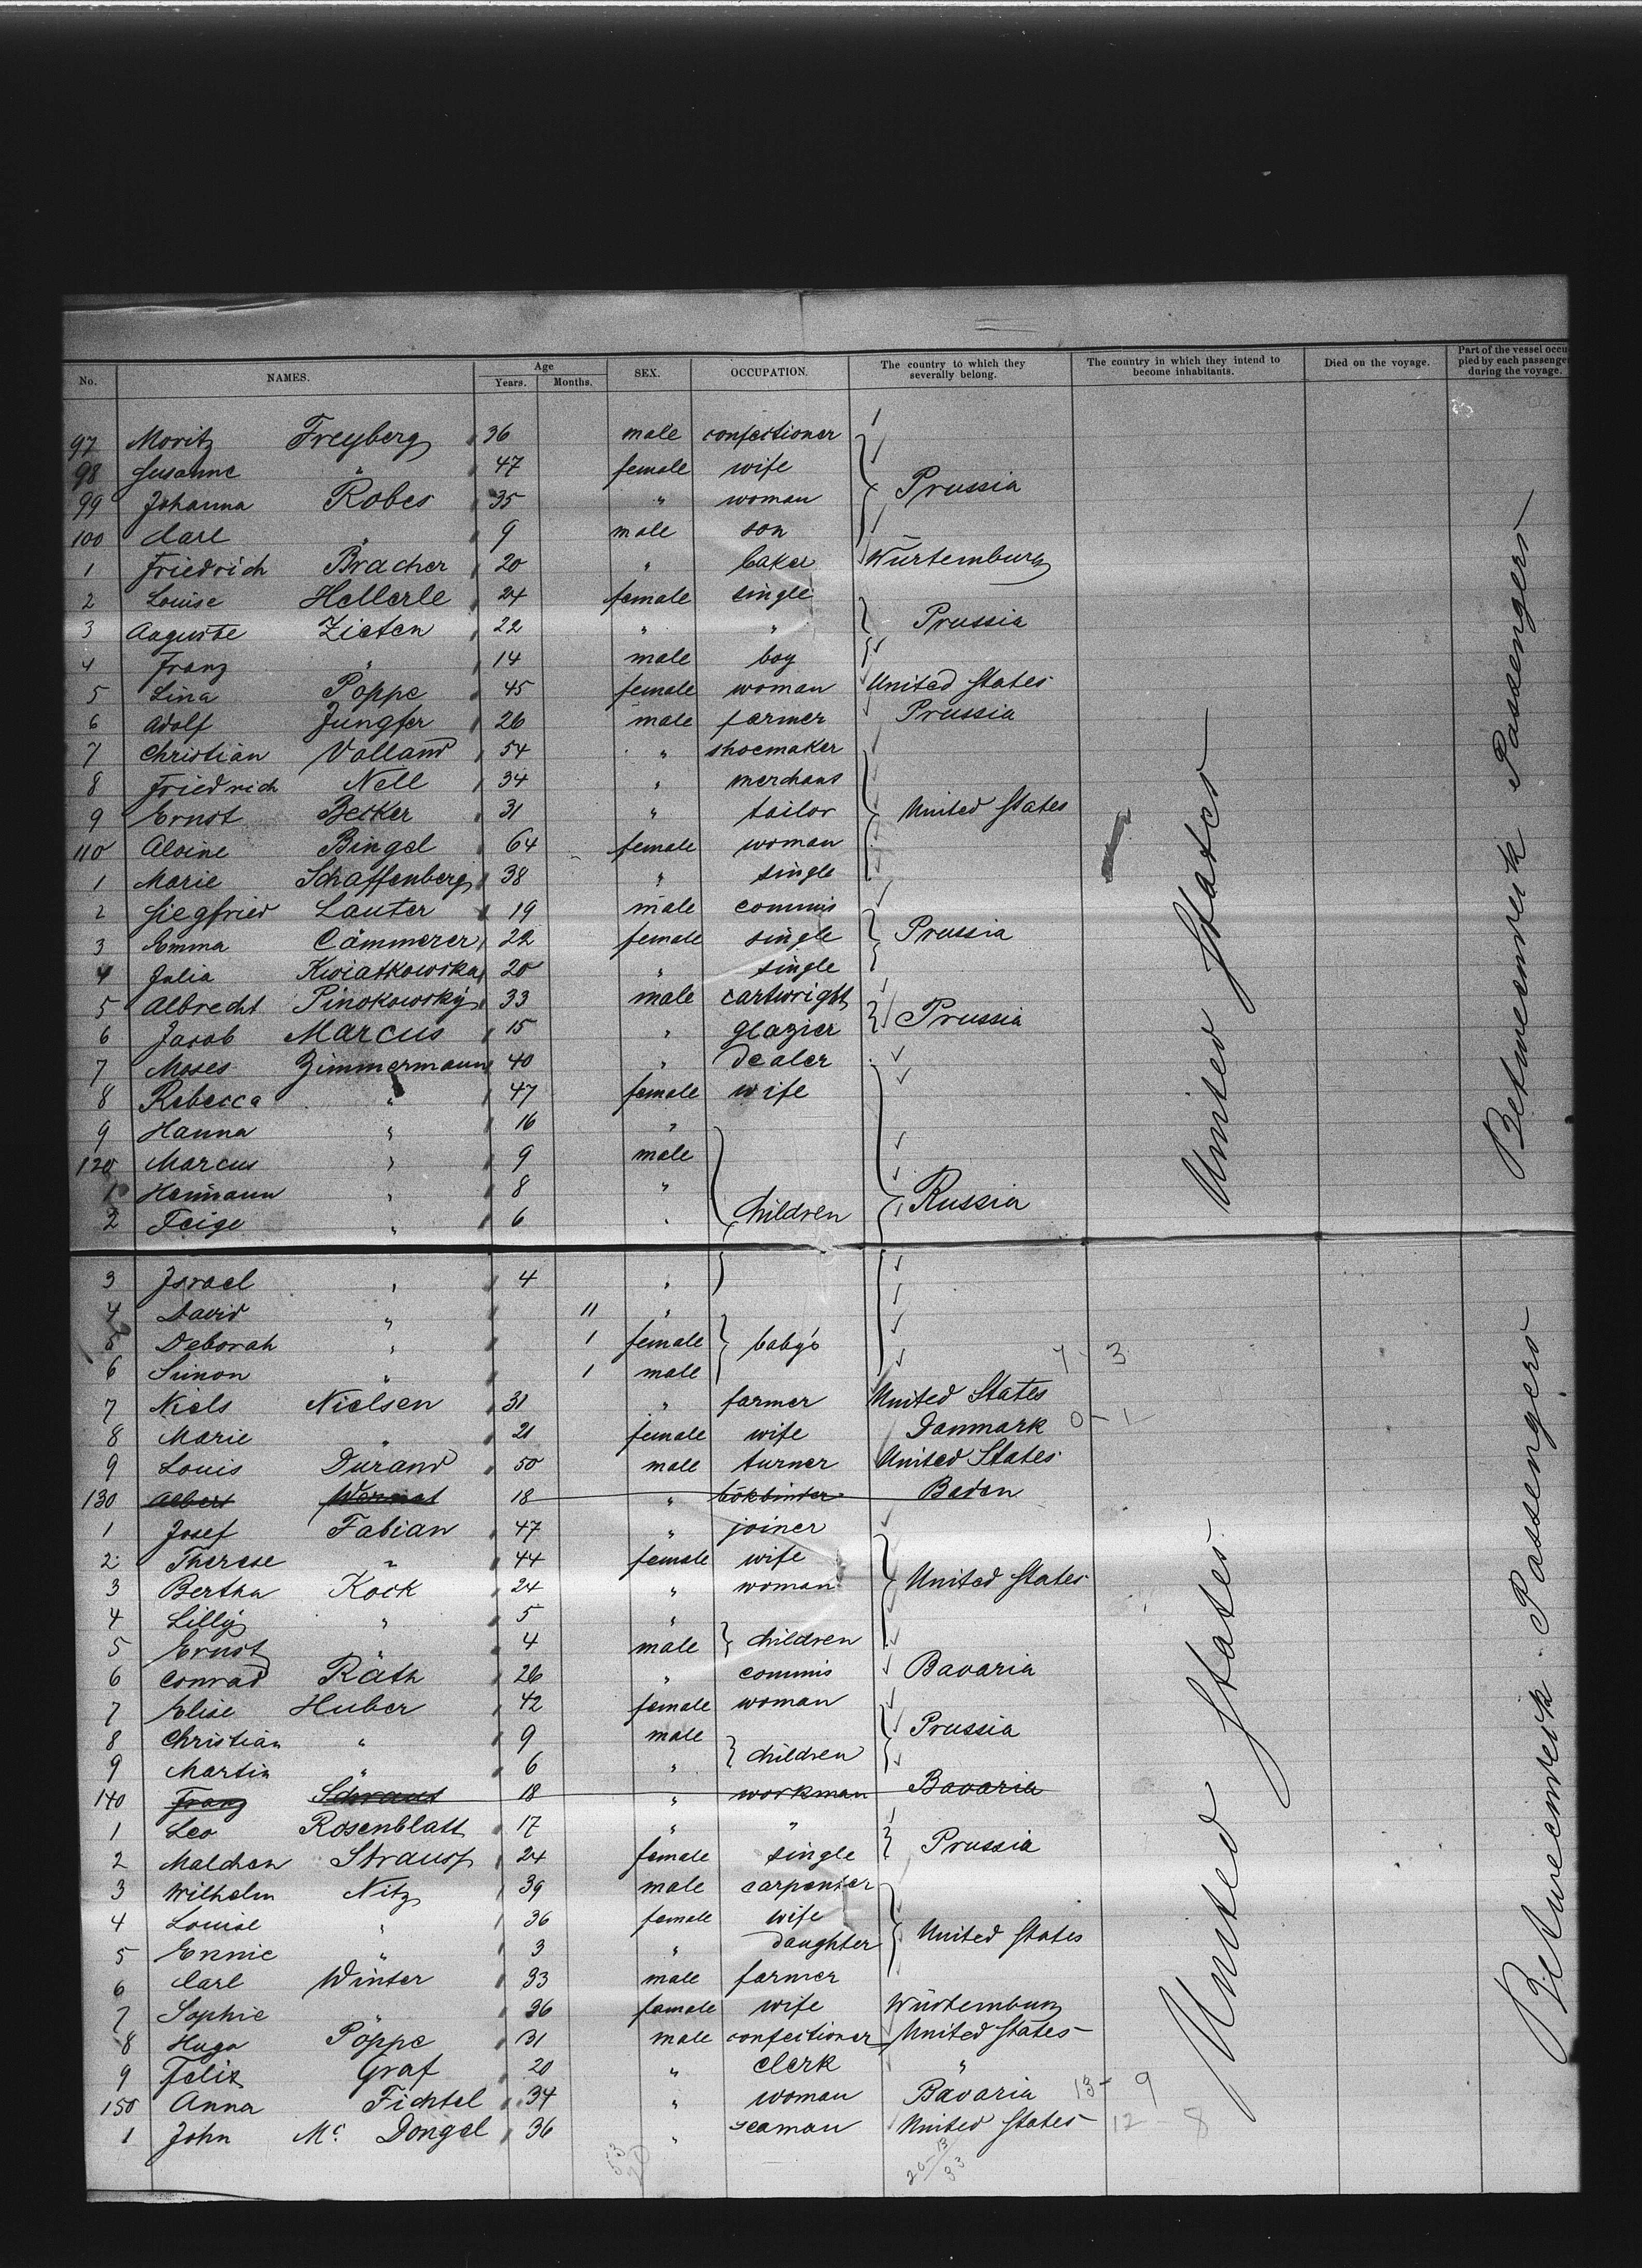 No. NAMES. Age Years. Months. SEX. OCCUPATION. The country to which they severally belong. The country in which they intend to become inhabitants. Died on the voyage. Part of the vessel occupied by each passenger during the voyage.
97 Moritz Freyberg 36 male confectioner
98 Susanne " 47 female wife
99 Johanna Robes 35 " woman Prussia
100 Carl " 9 male son
1 Friedrich Bracher 20 " baker Würtemburg
2 Louise Hellerle 24 female single
3 Auguste Zieten 22 " " Prussia
4 Franz " 14 male boy
5 Lina Poppe 45 female woman United States
6 Adolf Jungfer 26 male farmer Prussia
7 Christian Volland 54 " shoemaker
8 Friedrich Nell 34 " merchant
9 Ernst Becker 31 " tailor United States
110 Alvine Bingel 64 female woman
1 Marie Schaffenberg 38 " single
2 Siegfried Lauter 19 male commis
3 Emma Cämmerer 22 female single Prussia
4 Julia Kwiatkowska 20 " single
5 Albrecht Pinokowsky 33 male cartwright
6 Jacob Marcus 15 " glazier Prussia
7 Moses Zimmermann 40 " dealer
8 Rebecca " 47 female wife
9 Hanna " 16 "
120 Marcus " 9 male
1 Hermann " 8 "
2 Feige " 6 " Children Russia
3 Israel " 4 "
4 David " 11 "
5 Deborah " 1 female baby's
6 Simon " 1 male
7 Niels Nielsen 31 " farmer United States
8 Marie " 21 female wife Danmark
9 Louis Durand 50 male turner United States
130 Albert 18 " bökbinder Baden
1 Josef Fabian 47 " joiner
2 Therese " 44 female wife
3 Bertha Kock 24 " woman United States
4 Lilly " 5 "
5 Ernst " 4 male children
6 Conrad Räth 26 " commis Bavaria
7 Elise Huber 42 female woman
8 Christian " 9 male Prussia
9 Martin " 6 " children
140 Franz Schraut 18 " workman Bavaria
1 Leo Rosenblatt 17 " "
2 Malchen Strauss 24 female single Prussia
3 Wilhelm Nitz 39 male carpenter
4 Louise " 36 female wife
5 Ennie " 3 " daughter United States
6 Carl Winter 33 male farmer
7 Sophie " 36 female wife Würtemburg
8 Hugo Poppe 31 male confectioner United States
9 Felix Graf 20 " clerk "
150 Anna Fichtel 34 " woman Bavaria
1 John Mc Dongel 36 " seaman United States
United States
Betweendeck Passengers
United States
Betweendeck Passengers